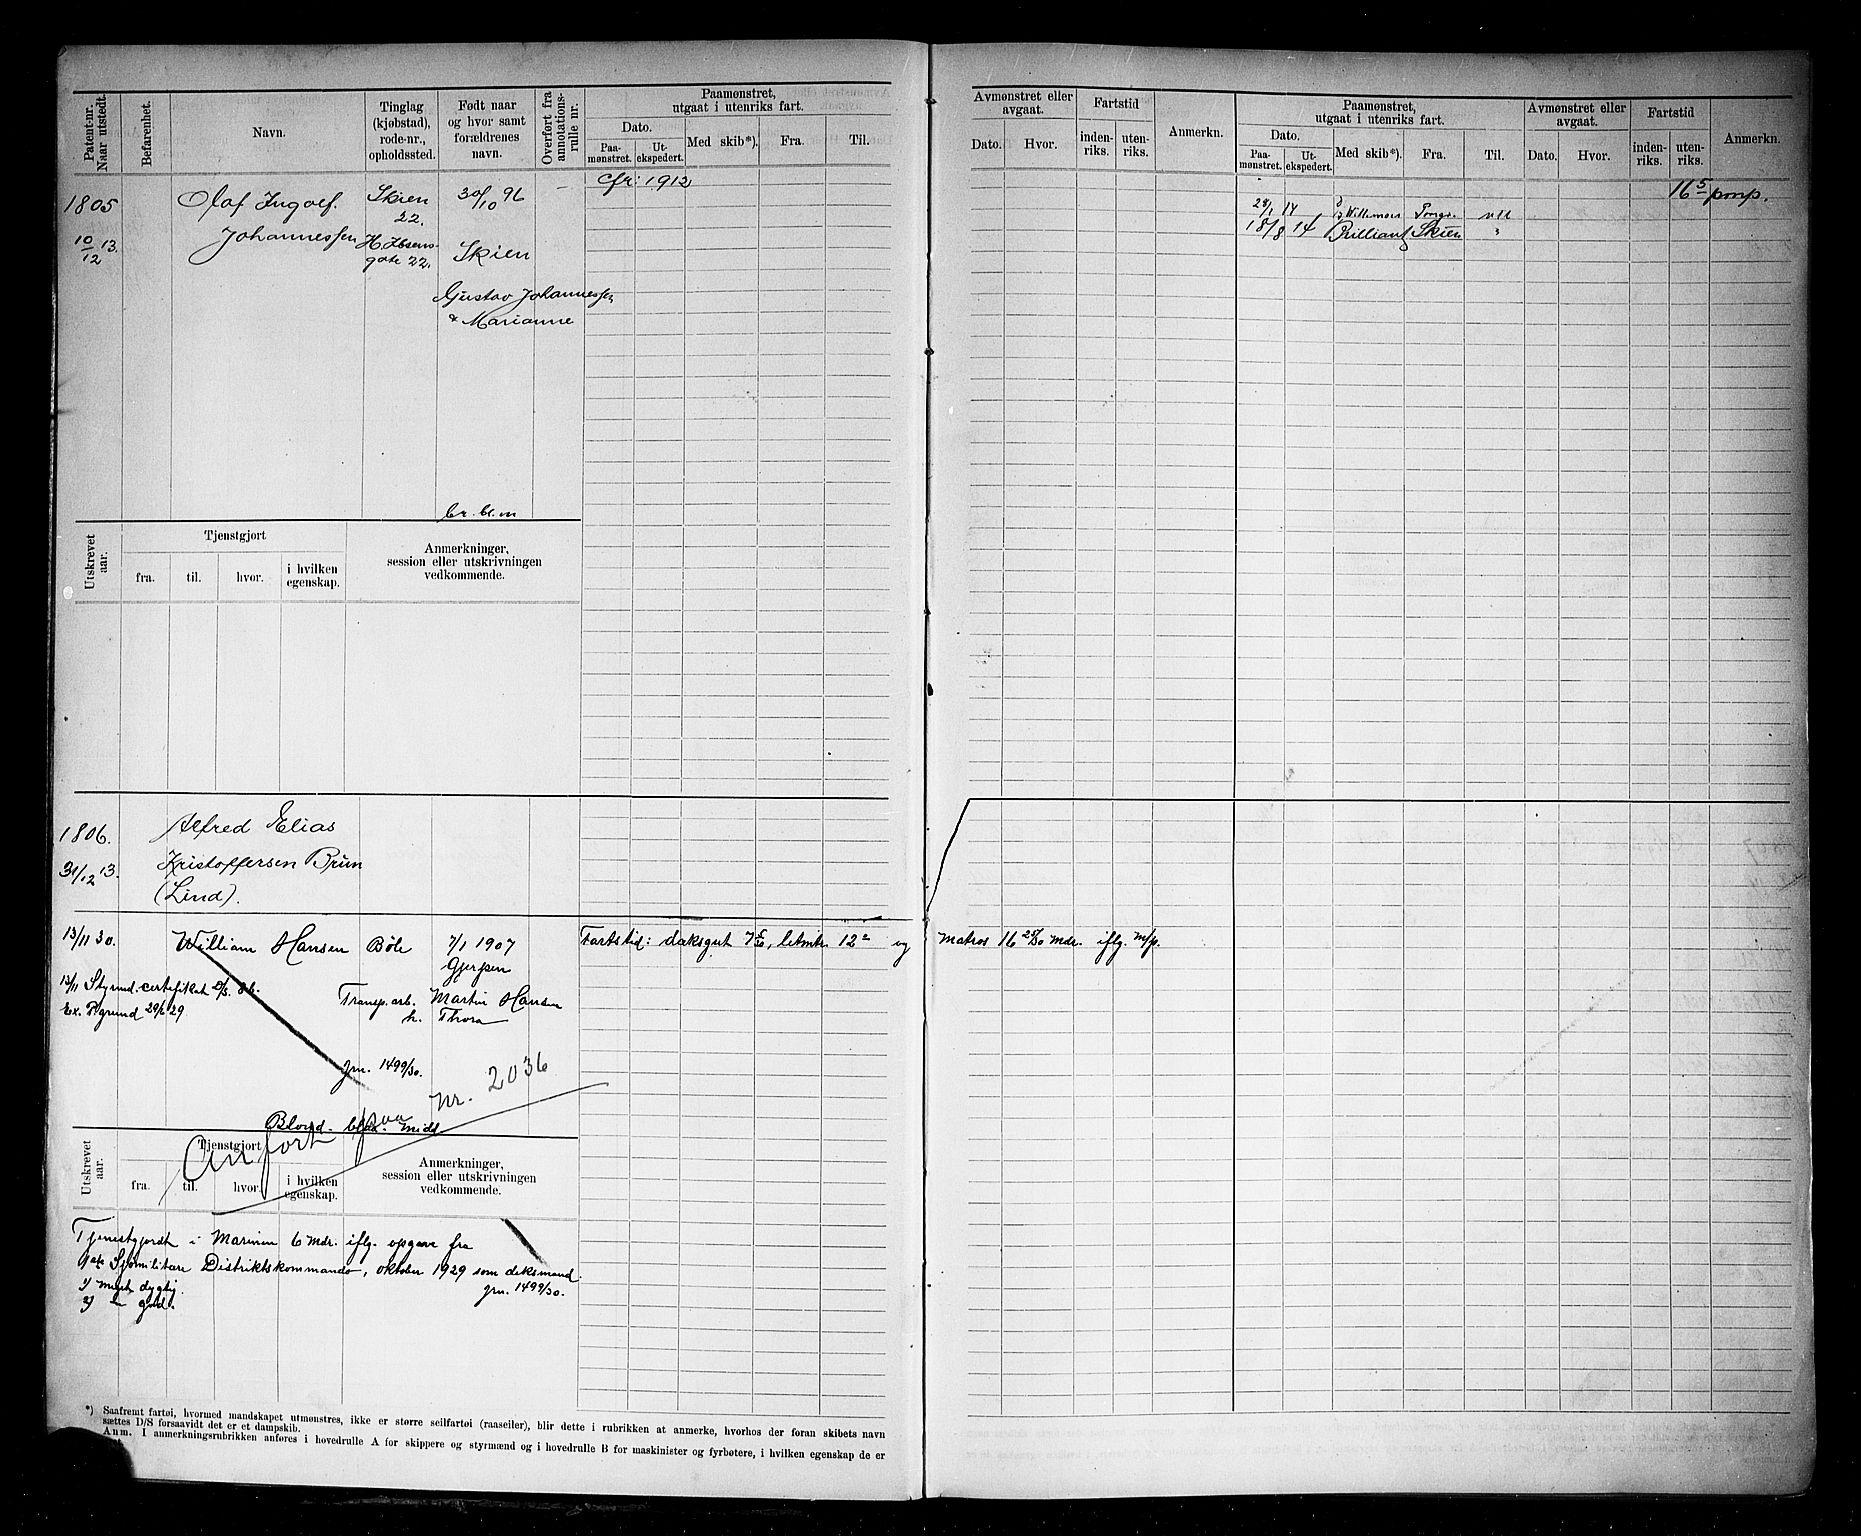 Patent-nr. Naar utstedt.
Befarenhet.
Navn.
Tinglag (kjøbstad), rode-nr., opholdssted.
Født naar og hvor samt forældrenes navn.
Overført fra annotations-rulle nr.
Paamønstret, utgaat i utenriks fart.
Dato.
Paa-mønstret.
Ut-ekspedert.
Med skib*).
Fra.
Til.
Avmønstret eller avgaat.
Dato.
Hvor.
Fartstid
inden-riks.
uten-riks.
Anmerkn.
Paamønstret, utgaat i utenriks fart.
Dato.
Paa-mønstret.
Ut-ekspedert.
Med skib*).
Fra.
Til.
Avmønstret eller avgaat.
Dato.
Hvor.
Fartstid
inden-riks.
uten-riks.
Anmerkn.
1805
10/12 13.
Olaf Ingolf.
Johannessen
Skien
22.
H. Ibsens-
gate 22.
30/10 96
Skien
Gustav Johannessen
& Marianne
br. bl. m
cfr: 1912
16 5 pmp.
28/1 14
18/8 14 Brilliant Skien "
Utskrevet aar.
Tjenstgjort
fra.
til.
hvor.
i hvilken egenskap.
Anmerkninger, session eller utskrivningen vedkommende.
1806.
31/12 13.
Alfred Elias
Kristoffersen Brun
(Lind).
13/11 30. William Hansen Böle 7/1 1907
Gjerpen
13/11 Styrmd. certefikat
Ex. P.grund 29/6 29
Transp. arb. Martin Hansen
h. Thora
jrn. 1499/30.
Blond. blaa. midd
Fartstid: daksgut 7, letmtr. 12 og matros 16 25/30 mdr. iflg. m/p.
Anført paa nr. 2036
Utskrevet aar.
Tjenstgjort
fra.
til.
hvor.
i hvilken egenskap.
Anmerkninger, session eller utskrivningen vedkommende.
Tjenestgjordt i Marinen 6 mdr. iflg. opgave fra
Sjømilitære Distriktskommando, oktober 1929 som deksmand.
1) Meget dygtig.
jrn. 1499/30.
2) " god.
*) Saafremt fartøi, hvormed mandskapet utmønstres, ikke er større seilfartøi (raaseiler), blir dette i rubrikken at anmerke, hvorhos der foran skibets navn
sættes D/S forsaavidt det er et dampskib.
Anm. I anmerkningsrubrikken anføres i hovedrulle A for skippere og styrmænd og i hovedrulle B for maskinister og fyrbøtere, i hvilken egenskap de er